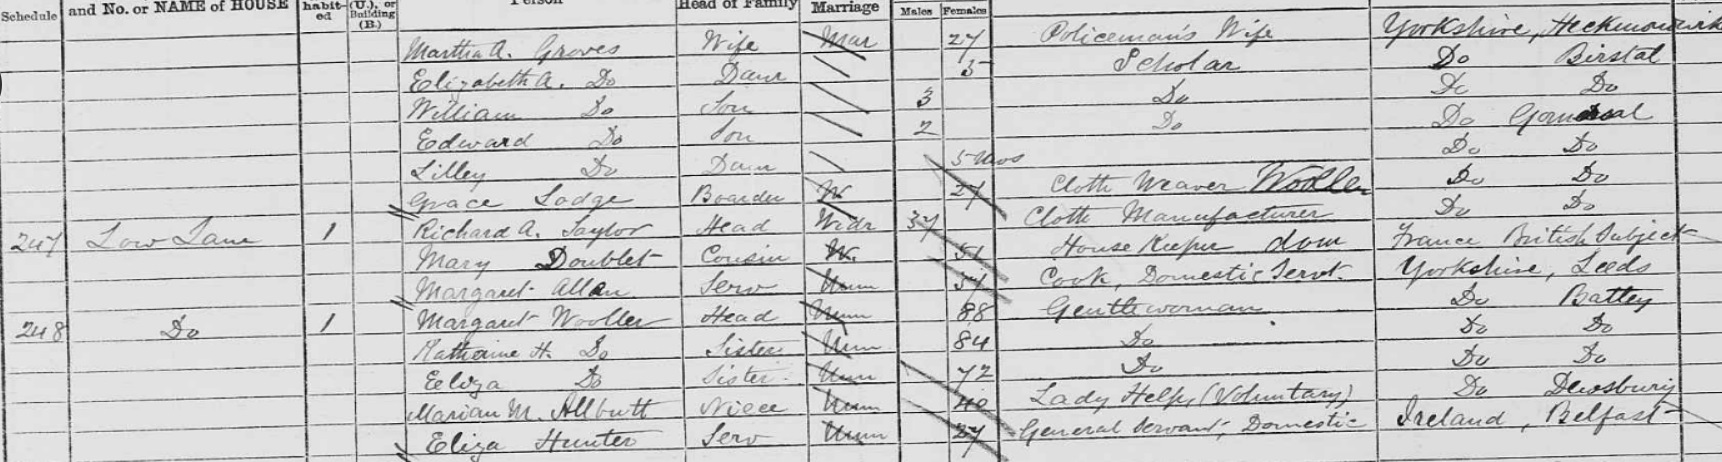 Schedule and No. or NAME of HOUSE habit-ed (U.), or Building (B.) Person Head of Family Marriage Males Females
Martha A. Groves Wife Mar 27 Policeman's Wife Yorkshire, Heckmondwike
Elizabeth A. Do Daur 5 Scholar Do Birstal
William Do Son 3 Do Do Do
Edward Do Son 2 Do Do Gomersal
Lilley Do Daur 5 Mos Do Do
Grace Lodge Boarder W. 27 Cloth Weaver Woollen Do Do
247 Low Lane 1 Richard A. Taylor Head Widr 37 Cloth Manufacturer Do Do
Mary Doublet Cousin W. 51 House Keeper dom France British Subject
Margaret Allan Serv Unm Cook, Domestic Servt. Yorkshire, Leeds
248 Do 1 Margaret Wooller Head Unm 88 Gentlewoman Do Batley
Katherine H. Do Sister Unm 84 Do Do Do
Eliza Do Sister Unm 72 Do Do Do
Marian M. Allbutt Niece Unm 40 Lady Help, (Voluntary) Do Dewsbury
Eliza Hunter Serv Unm 27 General Servant, Domestic Ireland, Belfast